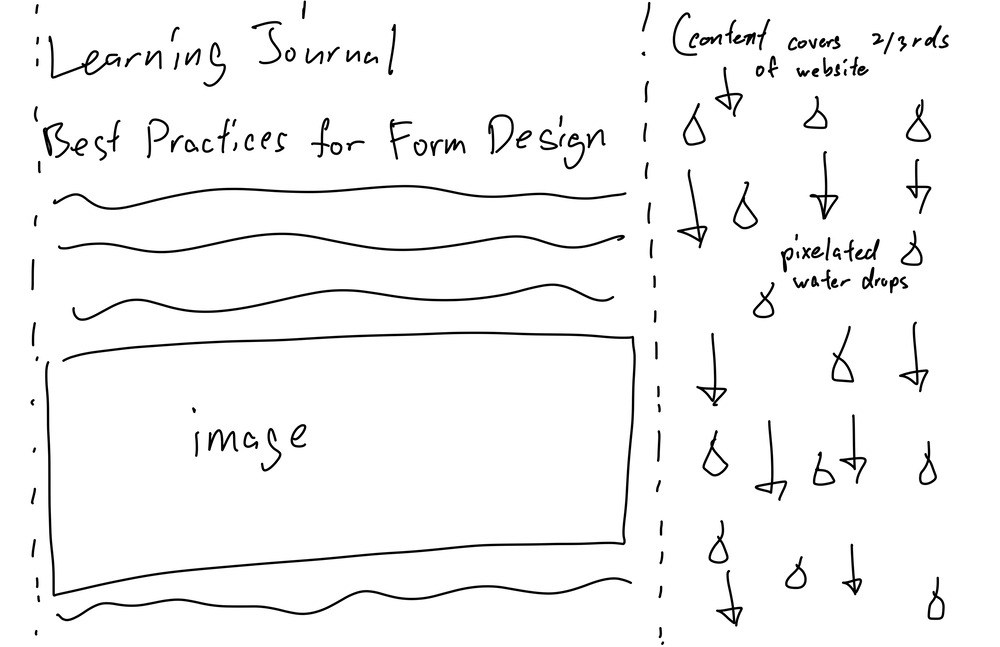 Learning Journal
Best Practices for Form Design
image
(content covers 2/3rds
of website
pixelated
water drops